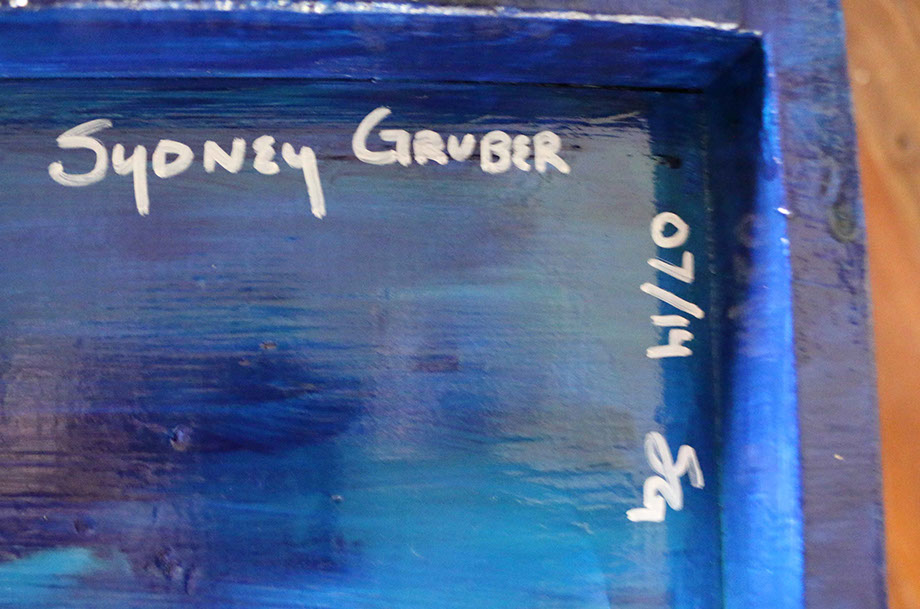 SYDNEY GRUBER
07/14
Sg